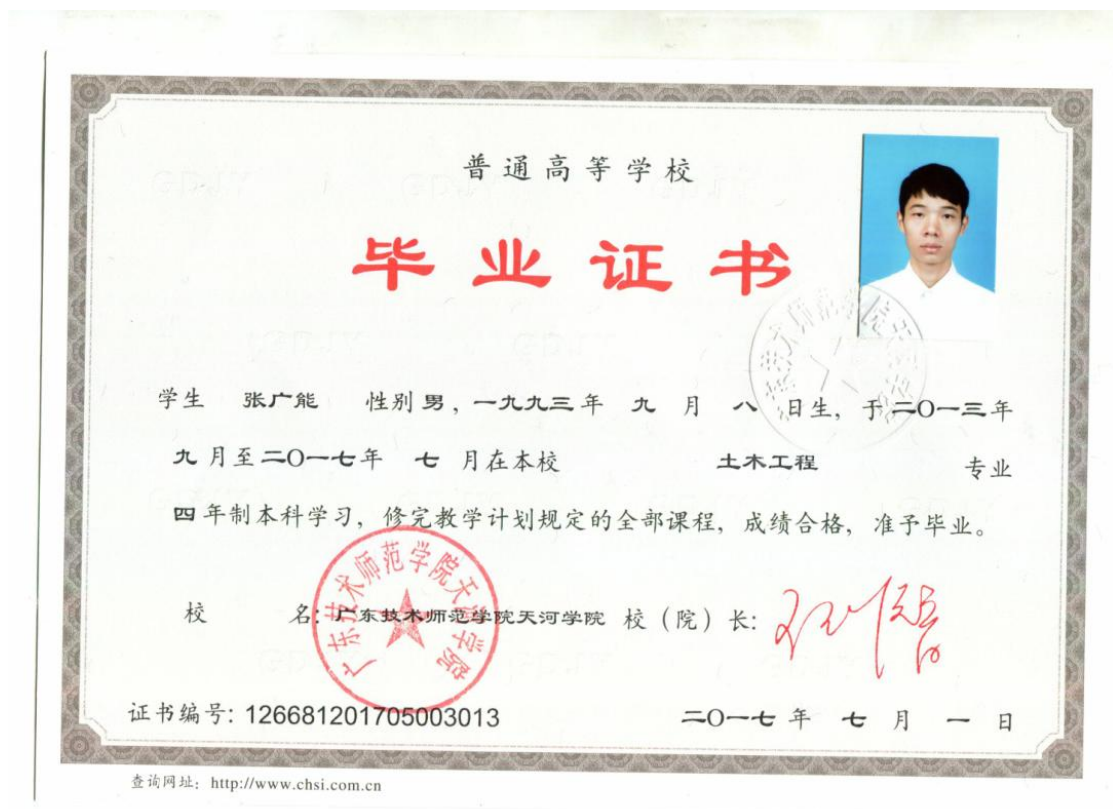 普通高等学校
毕业证书
学生 张广能 性别 男，一九九三年 九 月 八 日生，于二〇一三年
九 月至二〇一七年 七 月在本校 土木工程 专业
四 年制本科学习，修完教学计划规定的全部课程，成绩合格，准予毕业。
校 名：广东技术师范学院天河学院 校（院）长：
广东技术师范学院天河学院
证书编号：126681201705003013 二〇一七 年 七 月 一 日
查询网址：http://www.chsi.com.cn